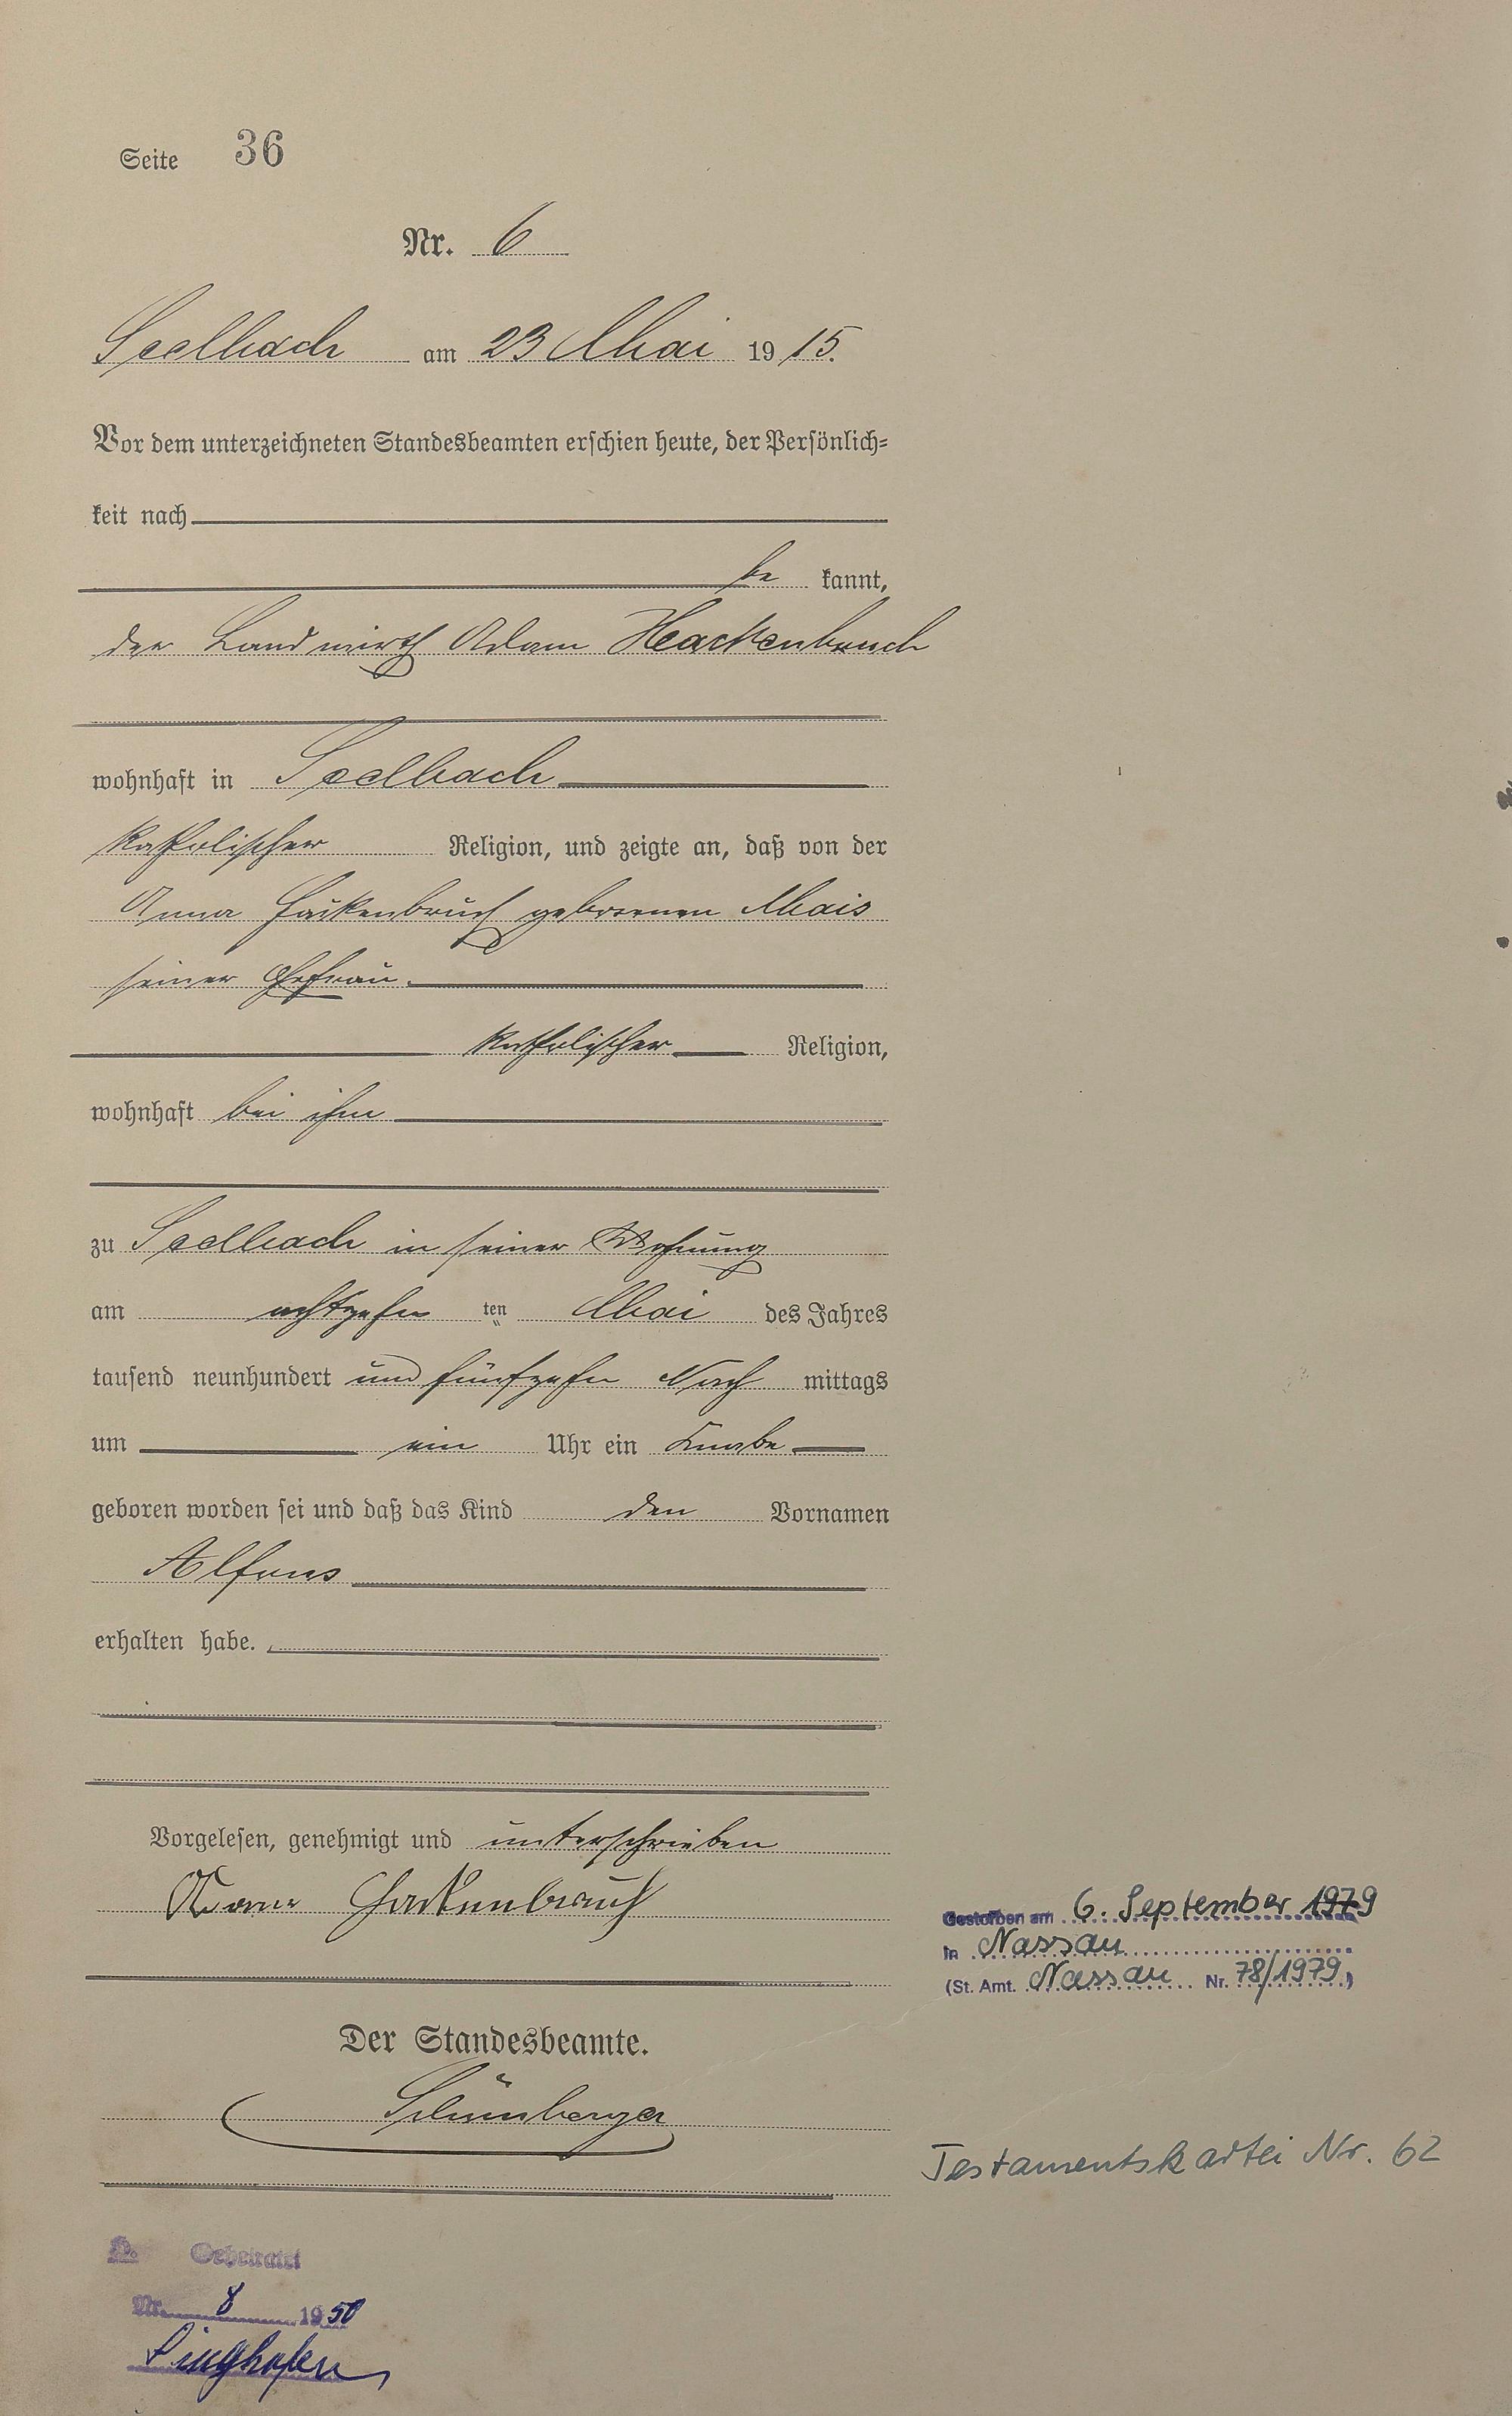 Seite 36
Nr. 6
Seelbach am 23 Mai 1915.
Vor dem unterzeichneten Standesbeamten erschien heute, der Persönlich-
keit nach
be kannt,
der Landwirth Adam Hackenbruch
wohnhaft in Seelbach
katholischer Religion, und zeigte an, daß von der
Anna Hackenbruch geborenen Mais
seiner Ehefrau
katholischer Religion,
wohnhaft bei ihm
zu Seelbach in seiner Wohnung
am achtzehn ten Mai des Jahres
tausend neunhundert und fünfzehn Nach mittags
um ein Uhr ein Knabe
geboren worden sei und daß das Kind den Vornamen
Alfons
erhalten habe.
Vorgelesen, genehmigt und unterschrieben
Adam Hackenbruch
Der Standesbeamte.
Gestorben am 6. September 1979
in Nassau
(St. Amt. Nassau Nr. 78/1979)
Testamentskartei Nr. 62
Geheiratet
Nr. 8 1950
Singhofen